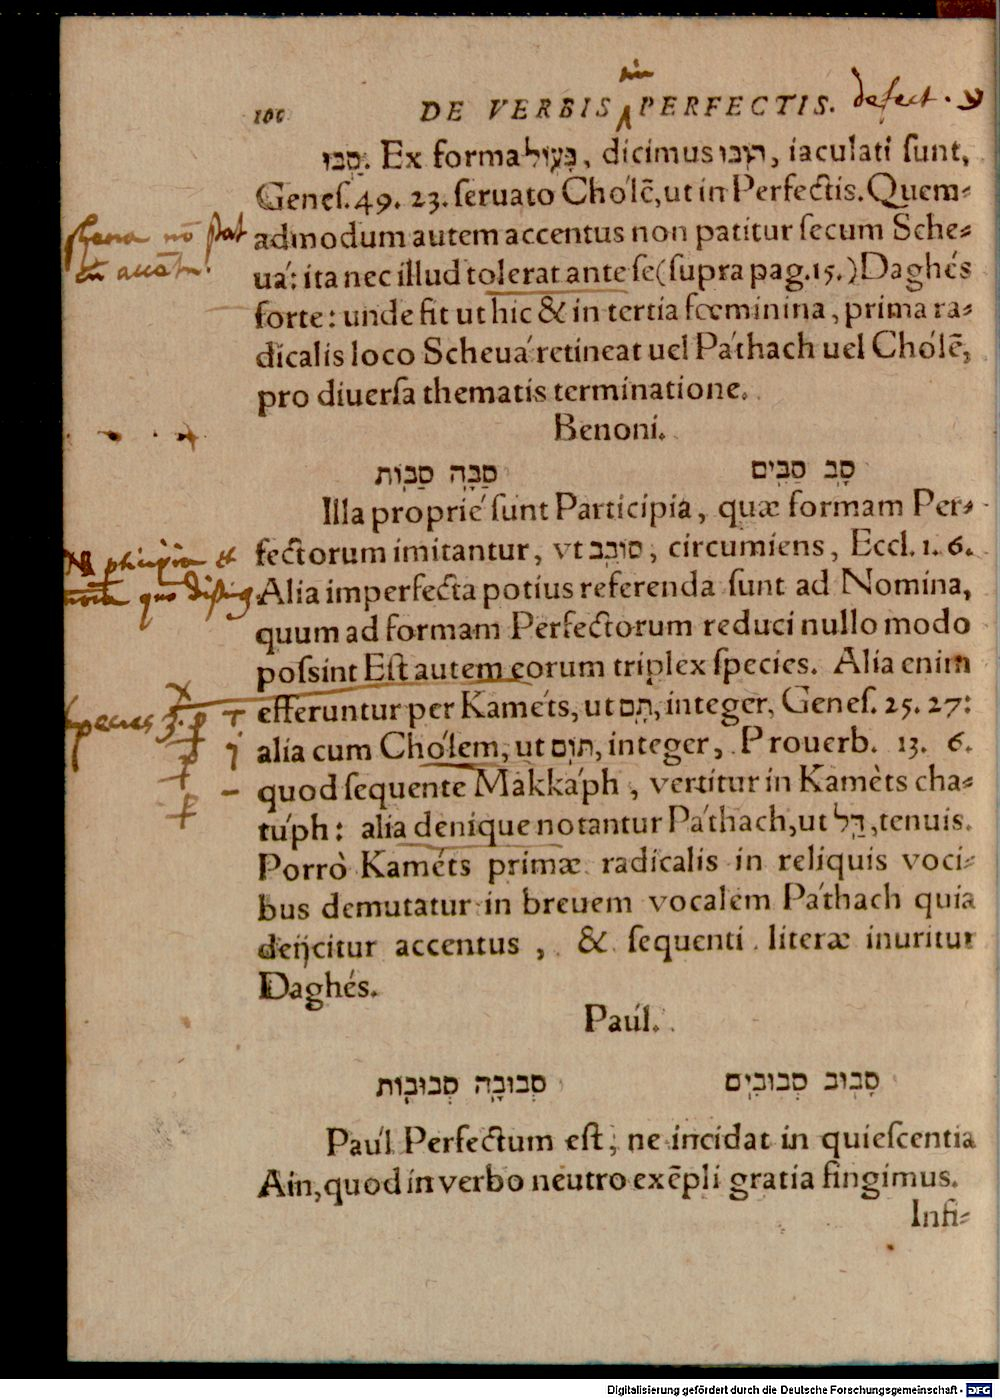 100 DE VERBIS PERFECTIS. defect.
im
סַבּוּ. Ex forma פָּעוֹל, dicimus רוֹבּוּ, iaculati sunt,
Genes. 49. 23. seruato Cholẽ, ut in Perfectis. Quem⸗
admodum autem accentus non patitur secum Sche⸗
uá: ita nec illud tolerat ante se (supra pag. 15.) Daghés
forte: unde fit ut hic & in tertia fœminina, prima ra⸗
dicalis loco Scheuá retineat uel Páthach uel Chólẽ,
pro diuersa thematis terminatione.
Benoni.
סָב סַבִּים סַבָּה סַבּוֹת
Illa proprié sunt Participia, quæ formam Per⸗
fectorum imitantur, vt סוֹבֵב, circumiens, Eccl. 1. 6.
Alia imperfecta potius referenda sunt ad Nomina,
quum ad formam Perfectorum reduci nullo modo
possint Est autem eorum triplex species. Alia enim
efferuntur per Kaméts, ut תָּם, integer, Genes. 25. 27:
alia cum Chólem, ut תוֹם, integer, Prouerb. 13. 6.
quod sequente Makkáph, vertitur in Kamèts cha⸗
túph: alia denique notantur Páthach, ut דַּל, tenuis.
Porrò Kaméts primæ radicalis in reliquis voci⸗
bus demutatur in breuem vocalem Páthach quia
deijcitur accentus, & sequenti literæ inuritur
Daghés.
Paúl.
סָבוּב סְבוּבִים סְבוּבָה סְבוּבוֹת
Paúl Perfectum est, ne incidat in quiescentia
Ain, quod in verbo neutro exẽpli gratia fingimus.
Infi⸗
Sheua nō stat
cū accētu.
et
quo disting.
species 3.
Digitalisierung gefördert durch die Deutsche Forschungsgemeinschaft - DFG